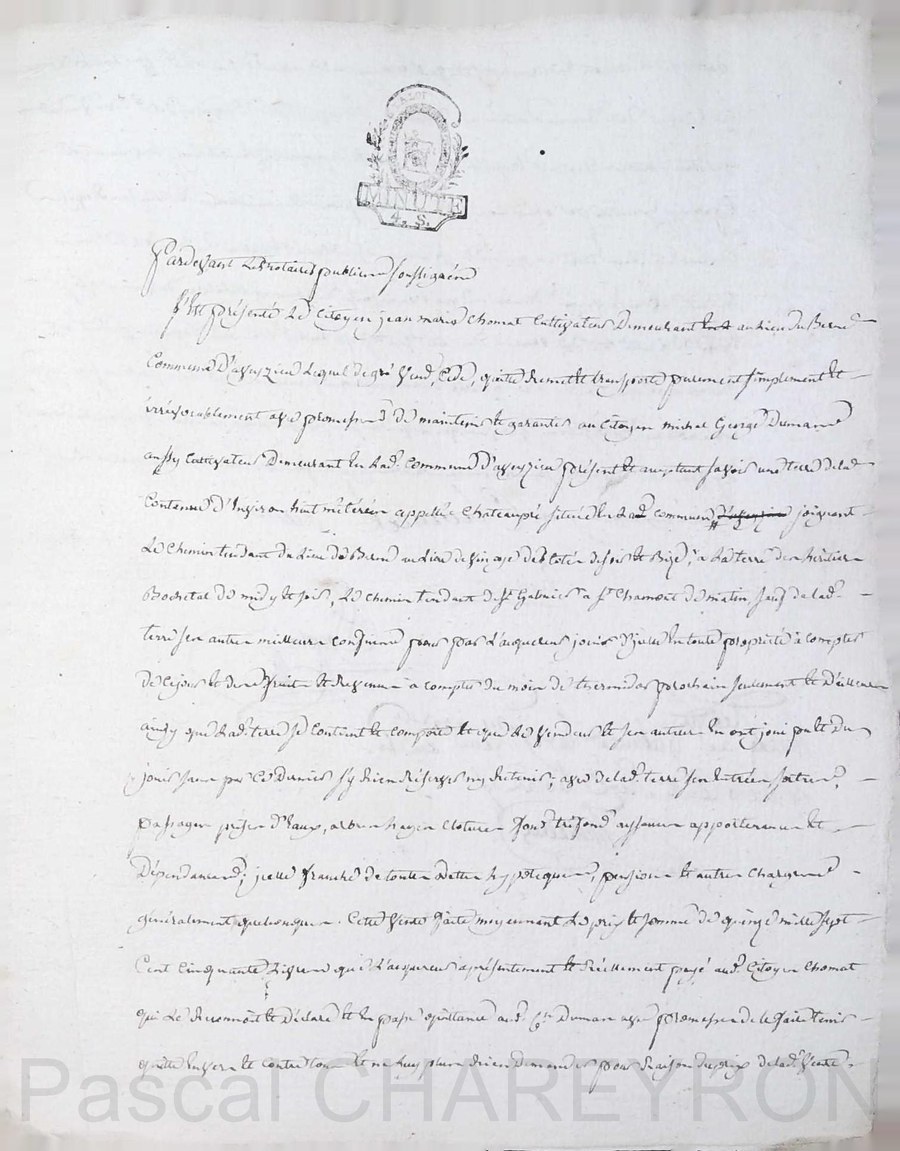 MINUTE
4. S.
Pardevant les notaires publics soussignés
s'est présenté le Citoyen jean marie Chomat Cultivateur Demeurant au lieu du Berne
Commune D'aveyzieu lequel de gré Vend, Cede, quitte remet et transporte purement simplement et
irrévocablement avec promesse de maintenir et garantir au Citoyen michel George Dumas
aussy Cultivateur Demeurant en lad. Commune D'aveyzieu présent et acceptant savoir une terre de la
Contenue D'Environ huitméterées appellée Chateaupré située en lad. commune joignant
Le Chemin tendant du lieu de Berne de bize, a la terre des héritiers
de midy et soir, Le chemin tendant de St. Galmier a St. Chamond de matin, sauf de lad.
terre ses autres meilleurs confins pour par l'acquereur jouir D'icelle en toute propriété a compter
De Cejour et des fruits et Revenus a compter du mois de thermidor prochain seulement et
ainsy que lad. terre se Contient et comporte et que le Vendeur et ses auteurs en ont joui pu et du
jouir sans par Ce Dernier s'y rien Réserver ny Retenir, avec de lad. terre ses Entrées sorties,
passages prises D'Eaux, arbres hayes clotures fond tréfond aisances appartenances et
Dépendances; icelle franche de toutes Dettes hypoteques, pensions et autres Charges
généralement quelconques. Cette Vente faite moyennant le prix et somme de quinze mille sept
Cent Cinquante Livres que l'acquereur a présentement et réellement payé aud. Citoyen Chomat
qui Le Reconnoit et Déclare et En passe quittance aud. Cen. Dumas avec promesse de le faire tenir
quitte Envers et contre tous et ne luy plus rien Demander pour Raison du prix de lad. Vente
Pascal CHAREYRON